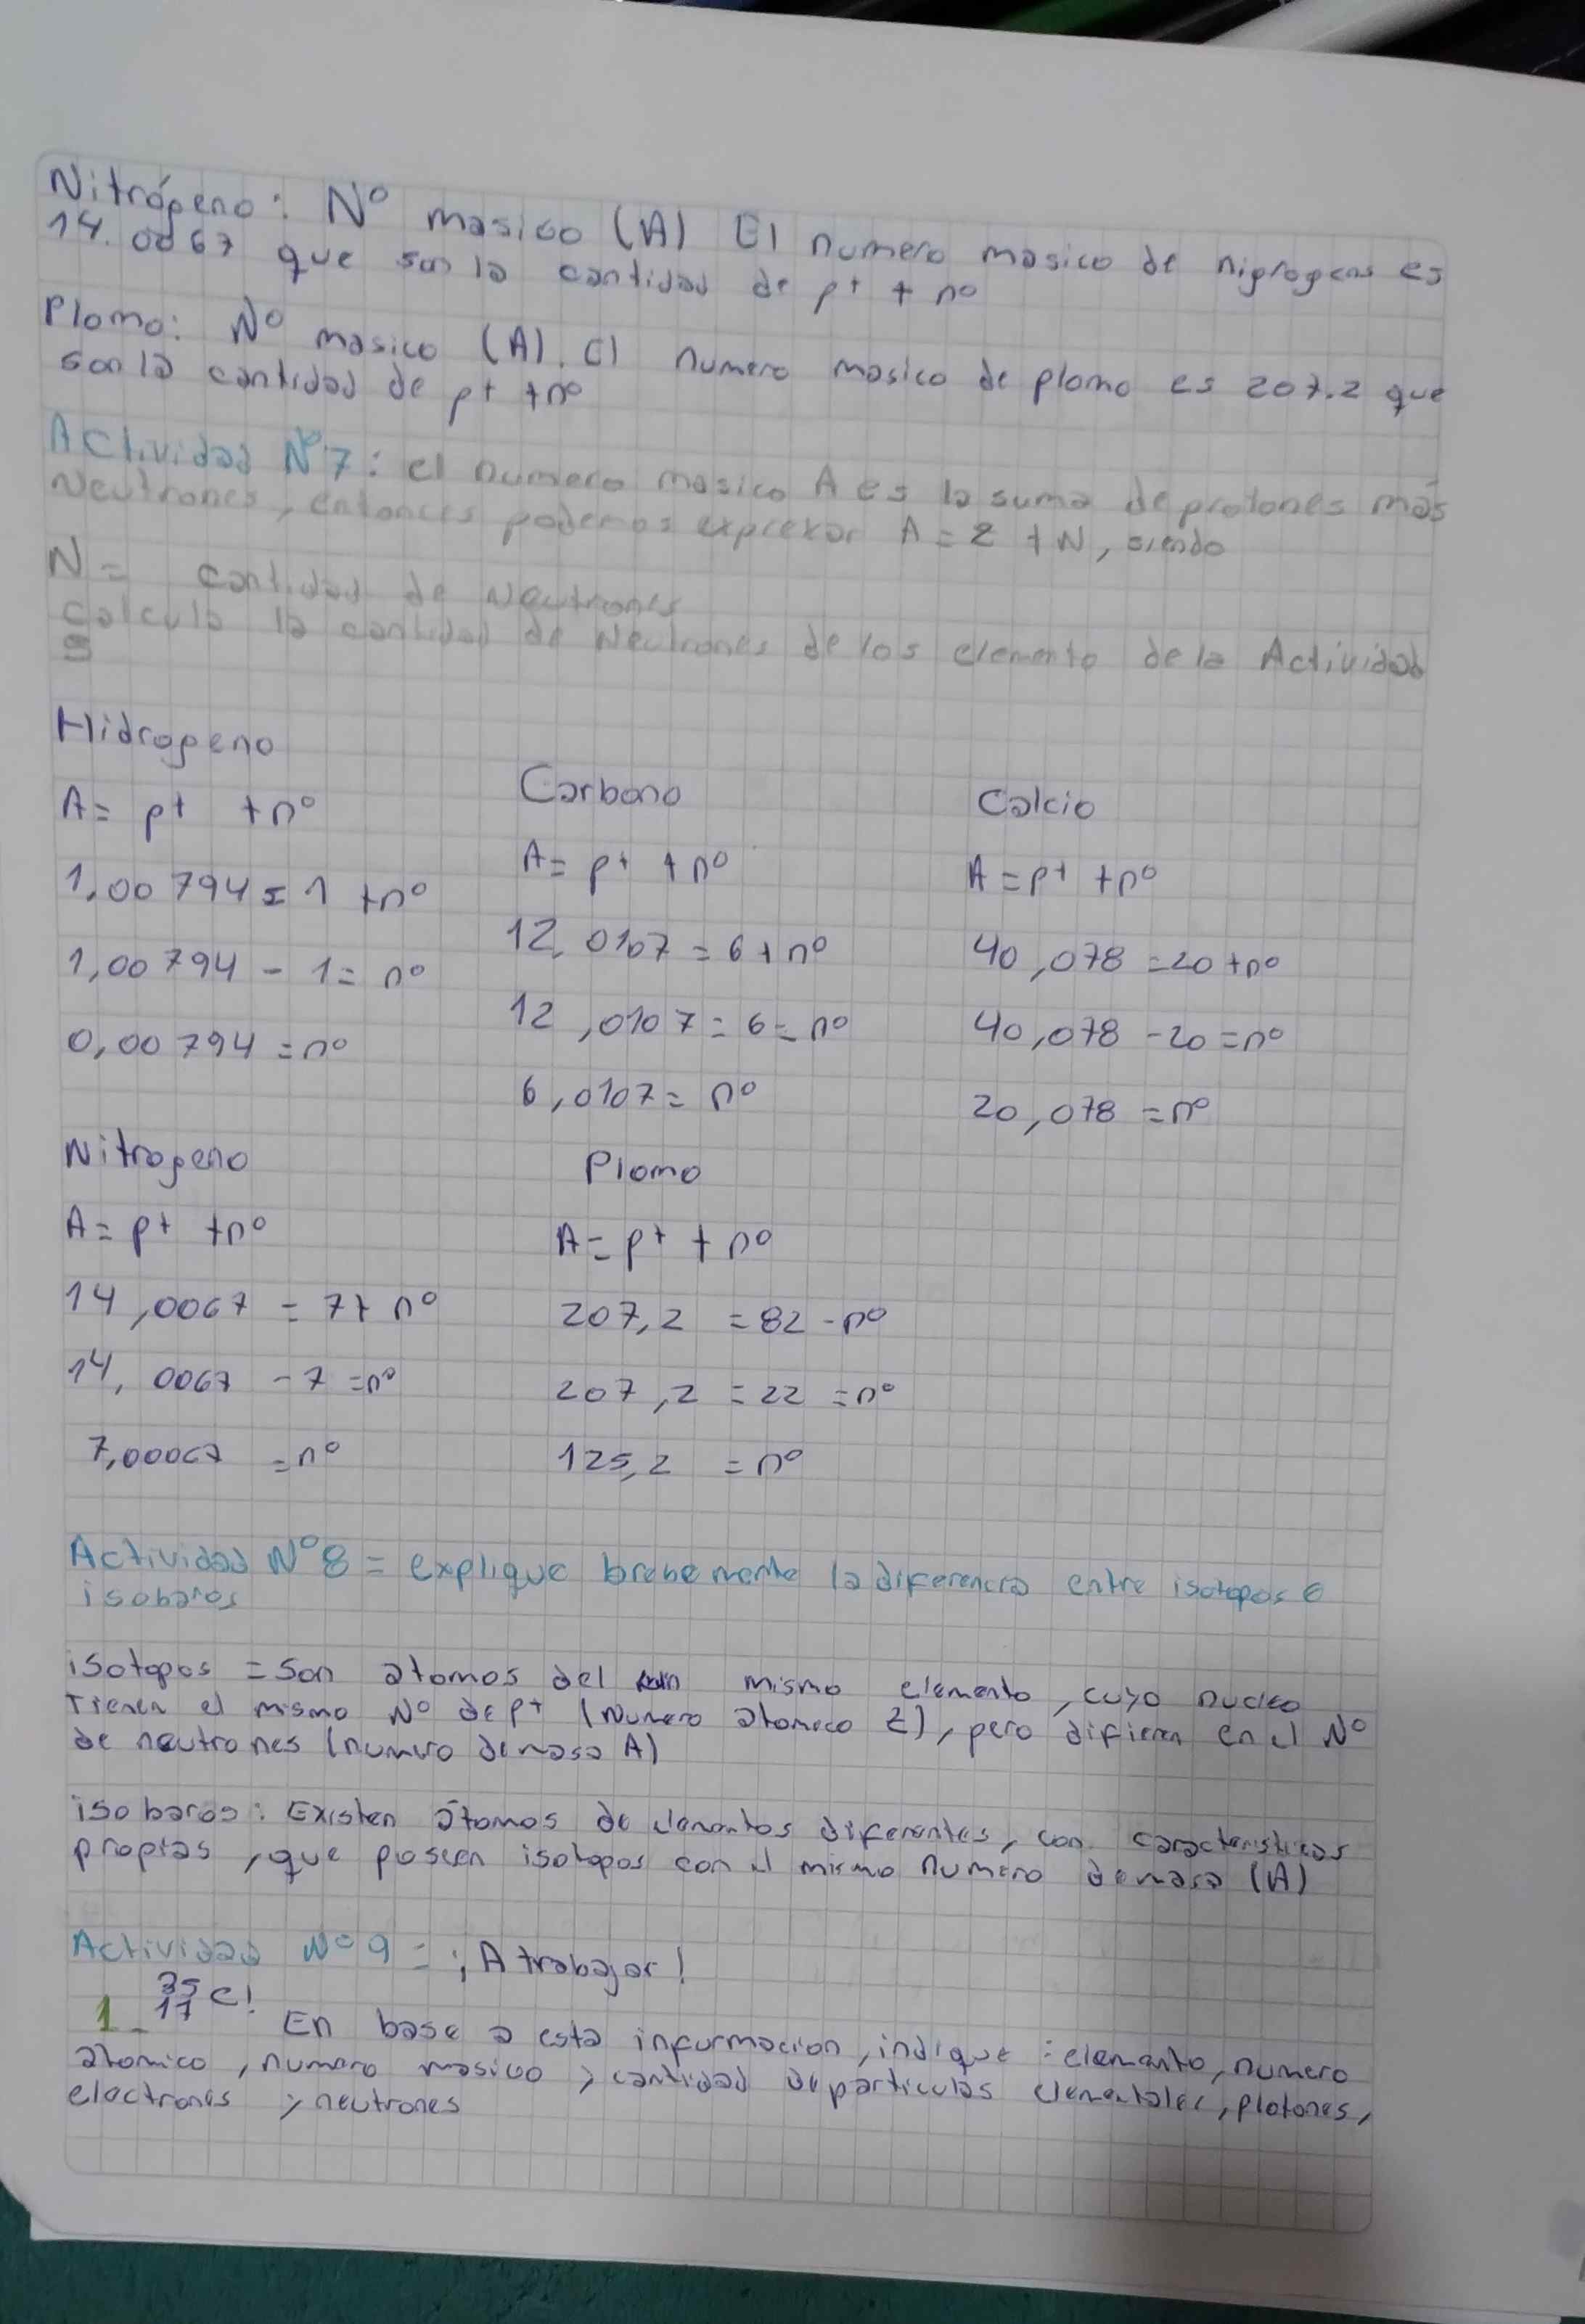 Nitrógeno: Nº masico (A) El numero masico de nigrogeno es
14.0067 que son la cantidad de p+ + nº
Plomo: Nº masico (A). El numero masico de plomo es 207.2 que
son la cantidad de p+ +nº
Actividad Nº7: el numero masico A es la suma de protones más
Neutrones, entonces podemos exprexar A = Z + N, siendo
N = cantidad de Neutrones
Calcula la cantidad de Neutrones de los elemento de la Actividad
Hidrogeno
A= p+ +nº
1,00794 = 1 +nº
1,00794 - 1= nº
0,00794 =nº
Carbono
A= p+ +nº
12,0107 = 6+nº
12,0107 = 6= nº
6,0107= nº
Calcio
A =p+ +nº
40,078 =20+nº
40,078 -20 =nº
20,078 =nº
Nitrogeno
A= p+ +nº
14,0067 = 7+ nº
14,0067 -7 =nº
7,00067 =nº
Plomo
A= p+ + nº
207,2 =82 -nº
207,2 =22 =nº
125,2 =nº
Actividad Nº8 = explique brebemente la diferencia entre isotopos e
isobaros
isotopos = Son atomos del mismo elemento, cuyo nucleo
Tienen el mismo Nº de p+ (Numero atomico Z), pero difieren en el Nº
de neutrones (numero de masa A)
isobaros: Existen átomos de elementos diferentes, con caracteristicas
propias, que poseen isotopos con el mismo numero de masa (A)
Actividad Nº9 = ¡A trabajar!
1_ 35 17 Cl En base a esta informacion, indique: elemento, numero
atomico, numero masico y cantidad de particulas elementales, plotones,
electrones y neutrones